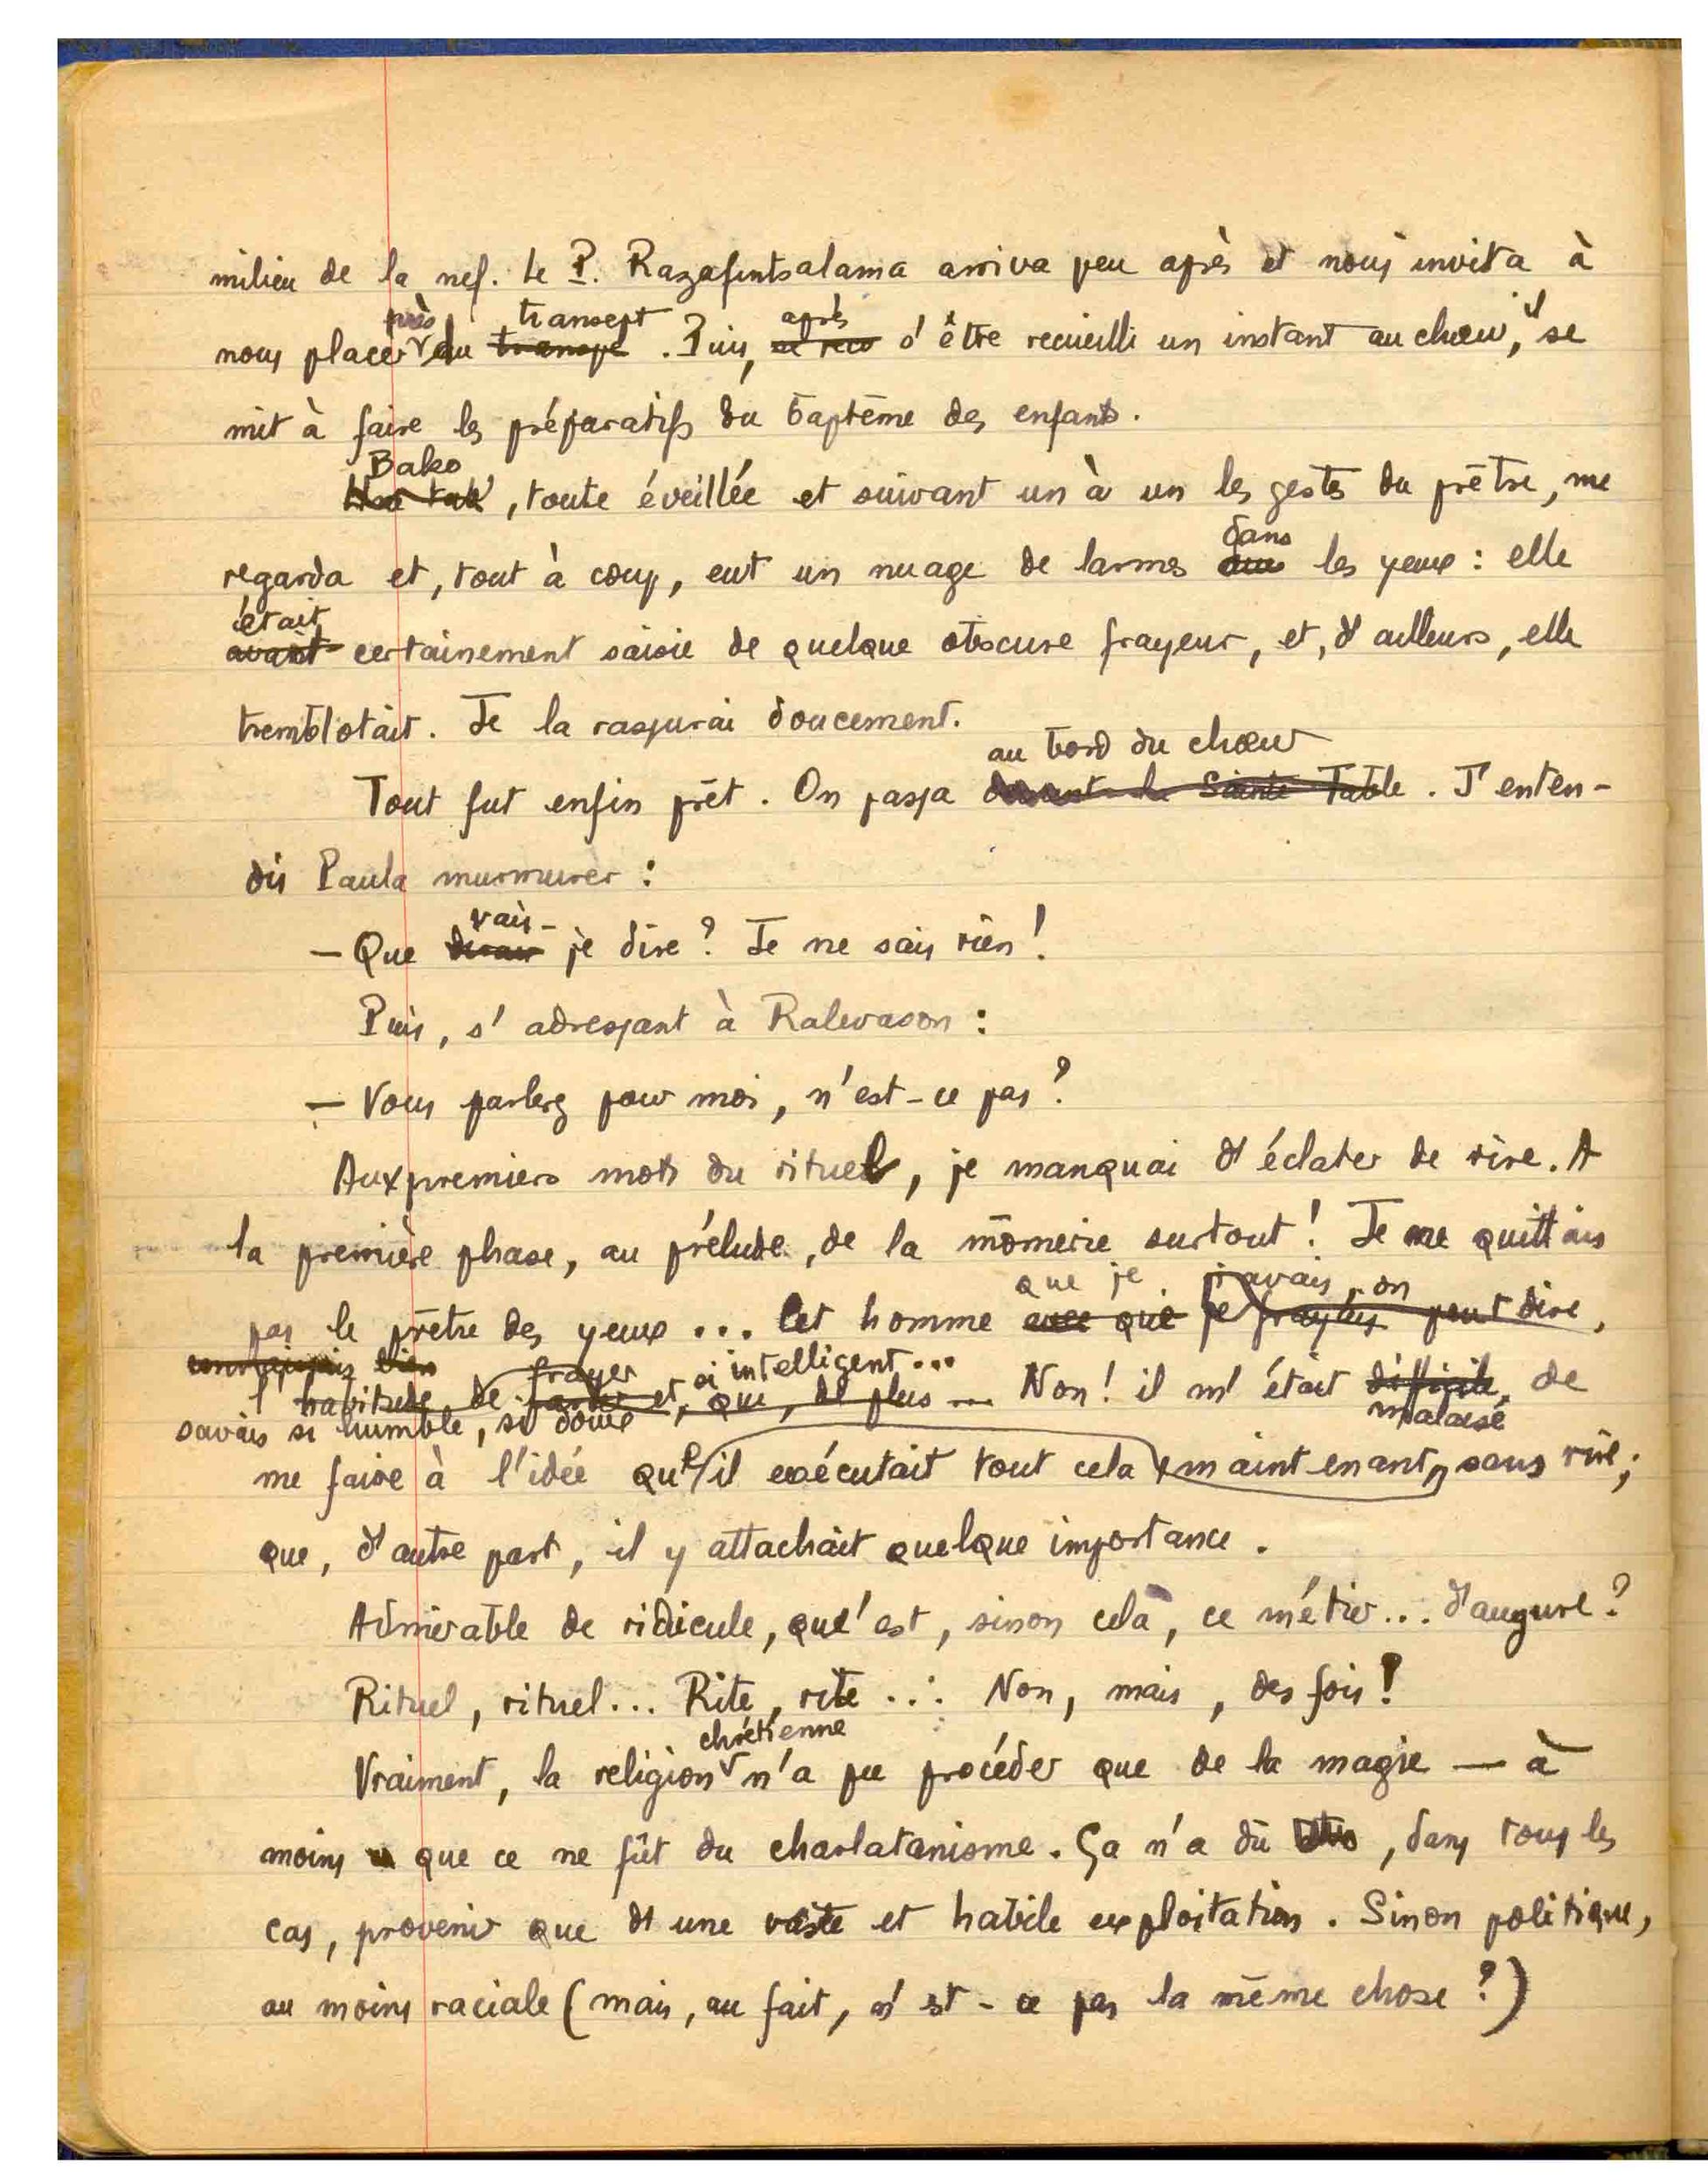 milieu de la nef. Le P. Razafintsalama arriva peu après et nous invita à
près transept après il
nous placer du transept . Puis, se recu s'être recueilli un instant au chœur, se
mit à faire les préparatifs du baptême des enfants.
Bako
, toute éveillée et suivant un à un les gestes du prêtre, me
dans
regarda et, tout à coup, eut un nuage de larmes les yeux : elle
était
avait certainement saisie de quelque obscure frayeur, et, d'ailleurs, elle
tremblotait. Je la rassurai doucement.
au bord du chœur
Tout fut enfin prêt. On passa devant la Sainte Table . J'enten-
dis Paula murmurer :
vais-
– Que je dire ? Je ne sais rien !
Puis, s'adressant à Ralevason :
– Vous parlez pour moi, n'est-ce pas ?
Aux premiers mots du rituel, je manquai d'éclater de rire. A
la première phase, au prélude, de la mômerie surtout ! Je ne quittais
que je j'avais, on
pas le prêtre des yeux ... Cet homme avec qui je peut dire,
connaissais bien frayer si intelligent...
l'habitude de et, que, de plus ... Non ! il m'était difficile, de
savais si humble, si doux malaisé
me faire à l'idée qu'il exécutait tout cela maintenant, sans rire ;
que, d'autre part, il y attachait quelque importance.
Admirable de ridicule, qu'est, sinon cela, ce métier... d'augure ?
Rituel, rituel... Rite, rite ... Non, mais, des fois !
chrétienne
Vraiment, la religion n'a pu procéder que de la magie – à
moins que ce ne fût du charlatanisme. Ça n'a dû , dans tous les
cas, provenir que d'une vaste et habile exploitation. Sinon politique,
au moins raciale (mais, au fait, n'est-ce pas la même chose ?)